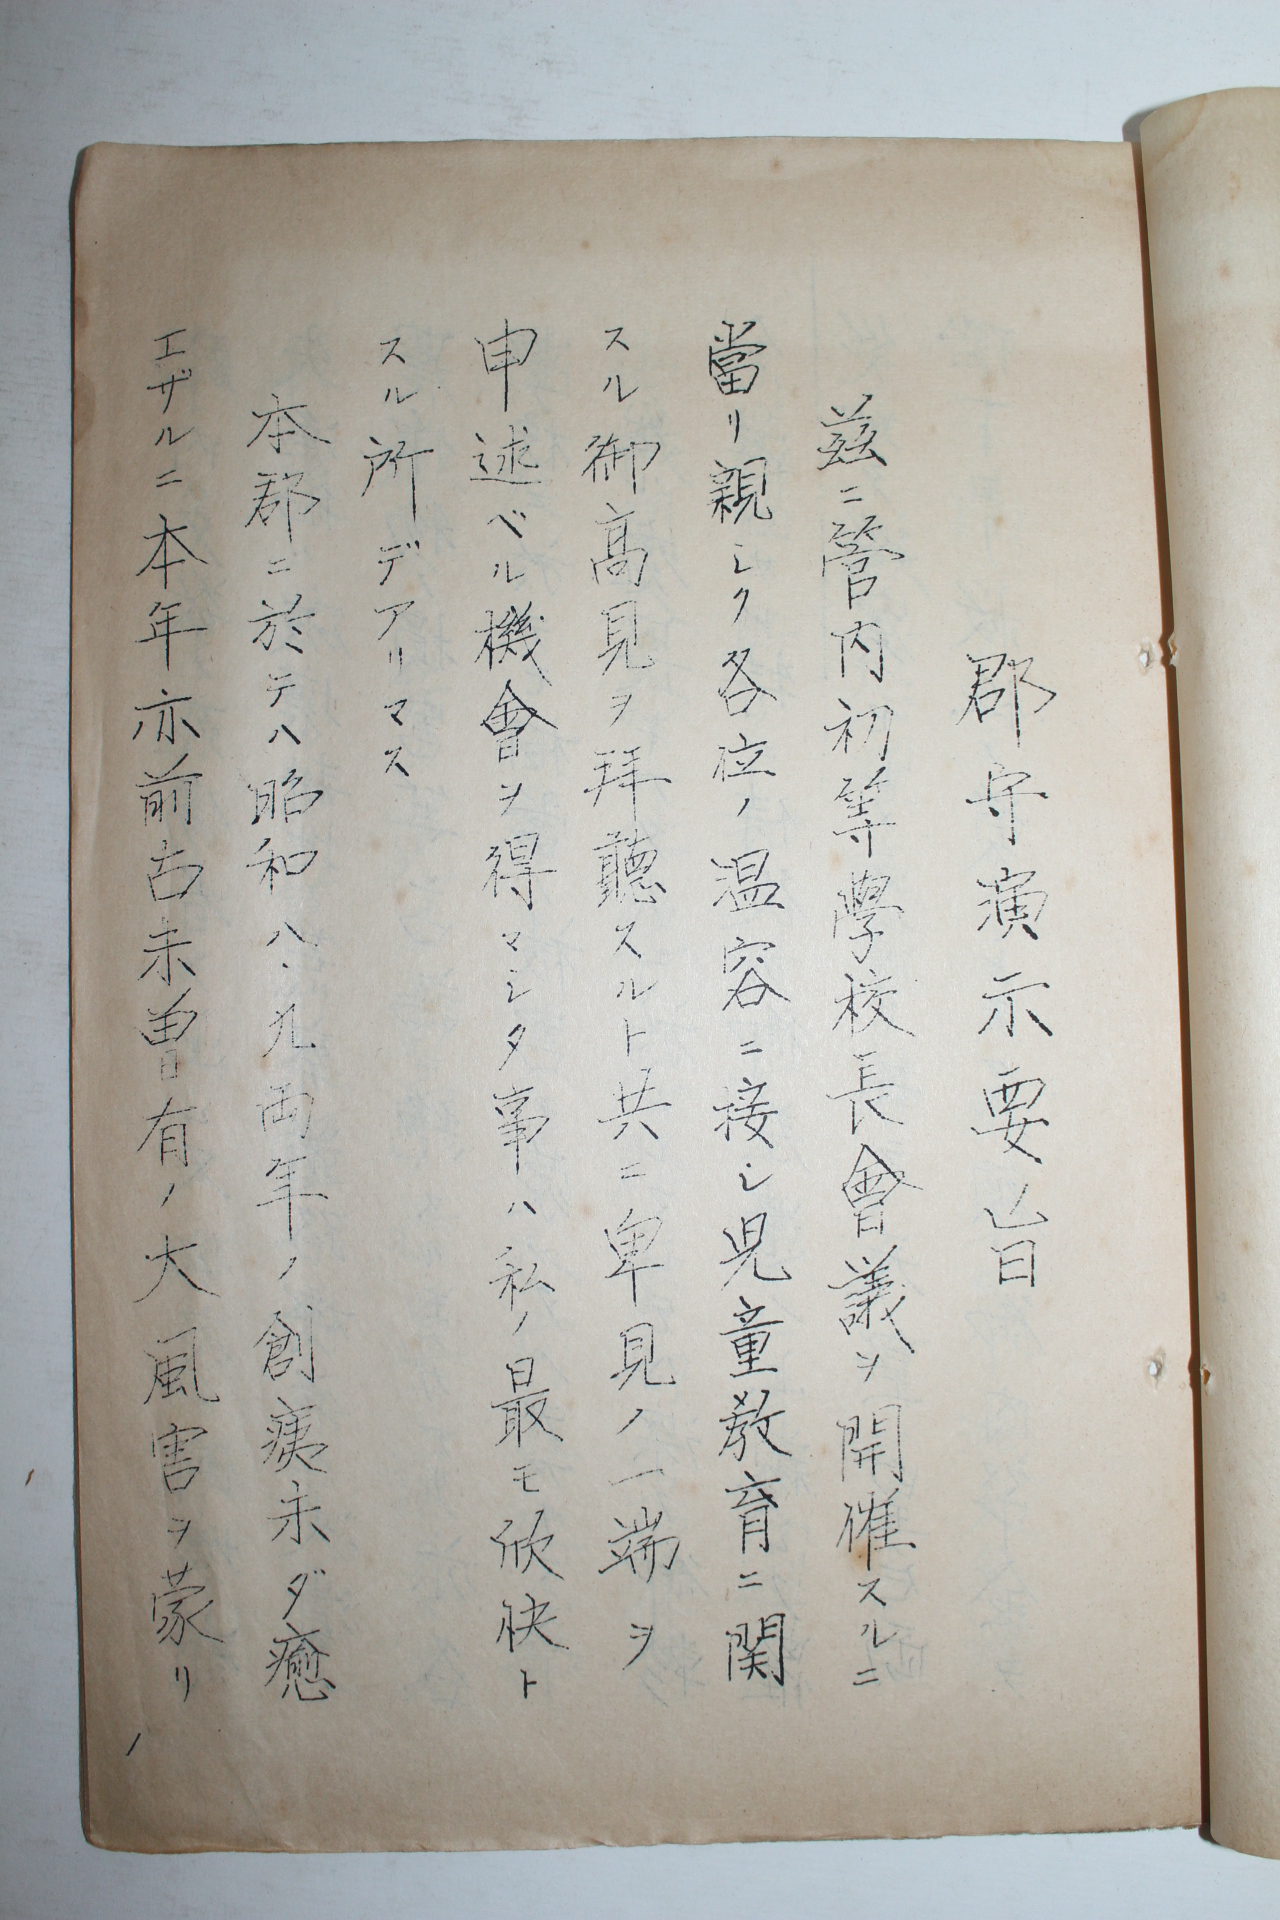 郡守演示要旨
茲ニ管内初等學校長會議ヲ開催スルニ
當リ親シク各位ノ温容ニ接シ児童教育ニ関
スル御高見ヲ拝聽スルト共ニ卑見ノ一端ヲ
申述ベル機會ヲ得マシタ事ハ私ノ最モ欣快ト
スル所デアリマス
本郡ニ於テハ昭和八、九両年ノ創痍未ダ癒
エザルニ本年亦前古未曽有ノ大風害ヲ蒙リ
1